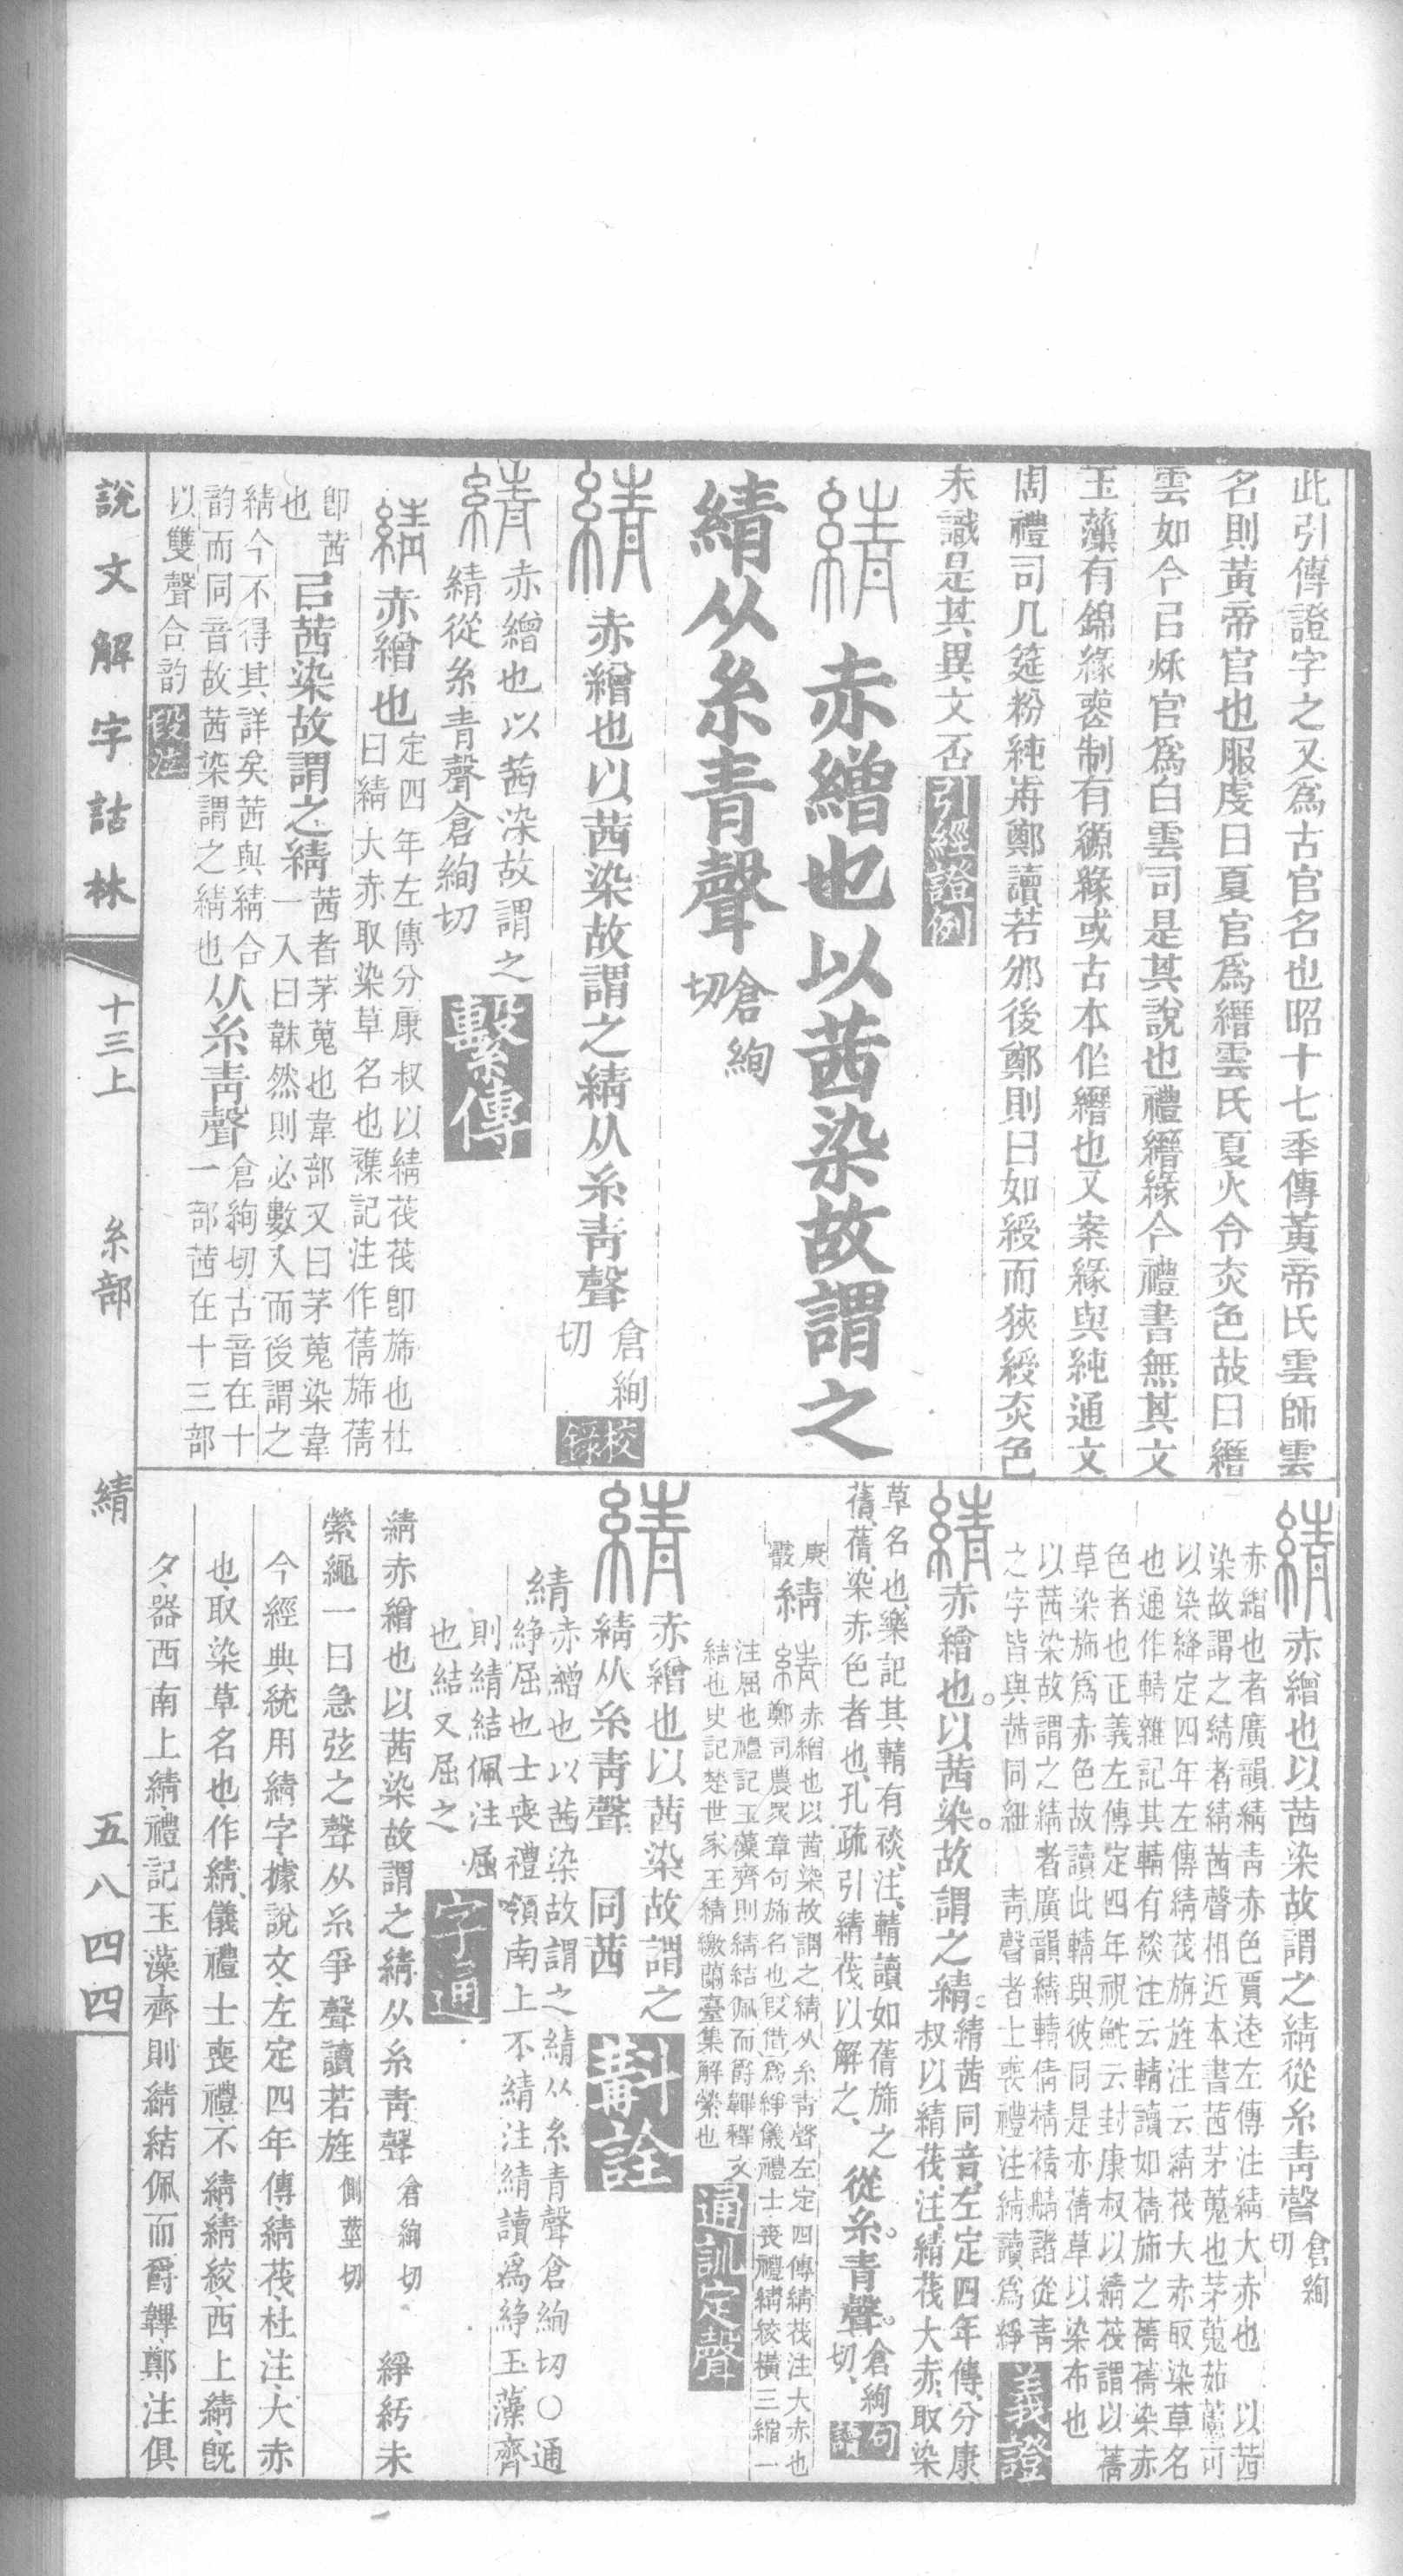 此引傳證字之又爲古官名也昭十七季傳黃帝氏雲師雲
名則黃帝官也服虔曰夏官爲縉雲氏夏火令炗色故曰縉
雲如今㠯秌官爲白雲司是其說也禮縉緣今禮書無其文
玉藻有錦緣㡭制有緣或古本作縉也又案緣與純通文
周禮司几筵粉純鄭讀若邠後鄭則曰如綬而狹綬炗色
未識是其異文否引經證例
綪 赤繒也以茜染故謂之
綪从糸青聲倉絢切
綪 赤繒也以茜染故謂之綪从糸靑聲倉絢切校錄
綪 赤繒也以茜染故謂之
綪從糸青聲倉絢切 繫傳
綪 赤繒也定四年左傳分康叔以綪茷茷卽旆也杜
曰綪大赤取染草名也襍記注作蒨旆蒨
卽茜
也㠯茜染故謂之綪茜者茅蒐也韋部又曰茅蒐染韋
一入曰韎然則必數入而後謂之
綪今不得其詳矣茜與綪合
韵而同音故茜染謂之綪也从糸靑聲倉絢切古音在十
一部茜在十三部
以雙聲合韵 段注
說文解字詁林 十三上 糸部 綪 五八四四
綪 赤繒也以茜染故謂之綪從糸青聲倉絢切
赤繒也者廣韻綪青赤色賈逵左傳注綪大赤也 以茜
染故謂之綪者綪茜聲相近本書茜茅蒐也茅蒐茹藘可
以染絳定四年左傳綪茷旃旌注云綪茷大赤取染草名
也通作輤雜記其輤有裧注云輤讀如蒨旆之蒨蒨染赤
色者也正義左傳定四年祝鮀云封康叔以綪茷謂以蒨
草染旆爲赤色故讀此輤與彼同是亦蒨草以染布也
以茜染故謂之綪者廣韻綪輤倩棈䋜諸從青
之字皆與茜同紐 青聲者士喪禮注綪讀爲絣 義證
綪 赤繒也。以茜染。故謂之綪。綪茜同音、左定四年傳、分康
叔以綪茷、注、綪茷大赤、取染
草名也、樂記其輤有裧、注、輤讀如蒨旆之
蒨、蒨、染赤色者也、孔疏引綪茷、以解之、從糸。青聲。倉絢切、句讀
庚
嚴
綪 赤繒也以茜染故謂之綪从糸青聲左定四傳綪茷注大赤也
鄭司農眾章句旆名也叚借爲絣儀禮士喪禮綪絞橫三縮一
注屈也禮記玉藻齊則綪結佩而爵韠釋文
結也史記楚世家王綪繳蘭臺集解縈也 通訓定聲
綪 赤繒也以茜染故謂之
綪从糸青聲 同茜 斠詮
綪 赤繒也以茜染故謂之綪从糸青聲倉絢切〇通
絣屈也士喪禮領南上不綪注綪讀爲絣玉藻齊
則綪結佩注屈
也結又屈之 字通
綪赤繒也以茜染故謂之綪从糸青聲倉絢切 綪紆未
縈繩一曰急弦之聲从糸爭聲讀若旌側莖切
今經典統用綪字、據說文、左定四年傳綪茷、杜注、大赤
也、取染草名也、作綪、儀禮士喪禮、不綪綪絞、西上綪、旣
夕、器西南上綪、禮記玉藻、齊則綪結佩而爵韠、鄭注俱